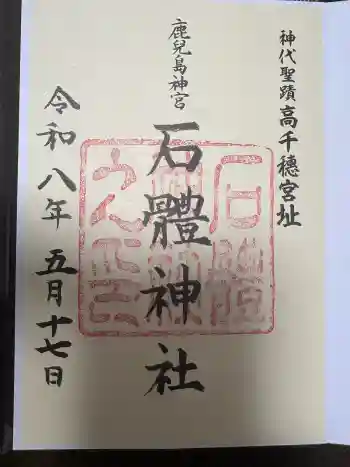 神代聖蹟 高千穗宮址
鹿兒島神宮
石體神社
令和八年 五月十七日